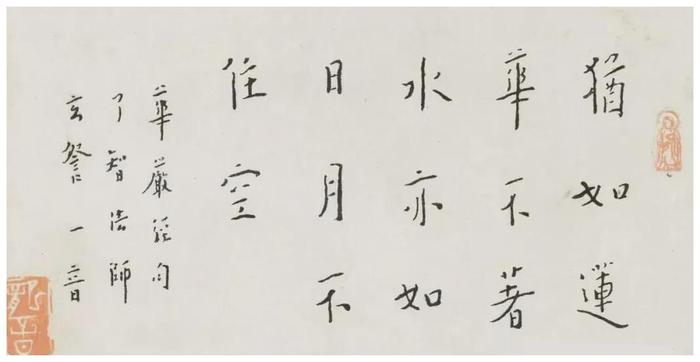 猶如蓮
華不著
水亦如
日月不
住空
華嚴經句
了智法師
玄詧一音